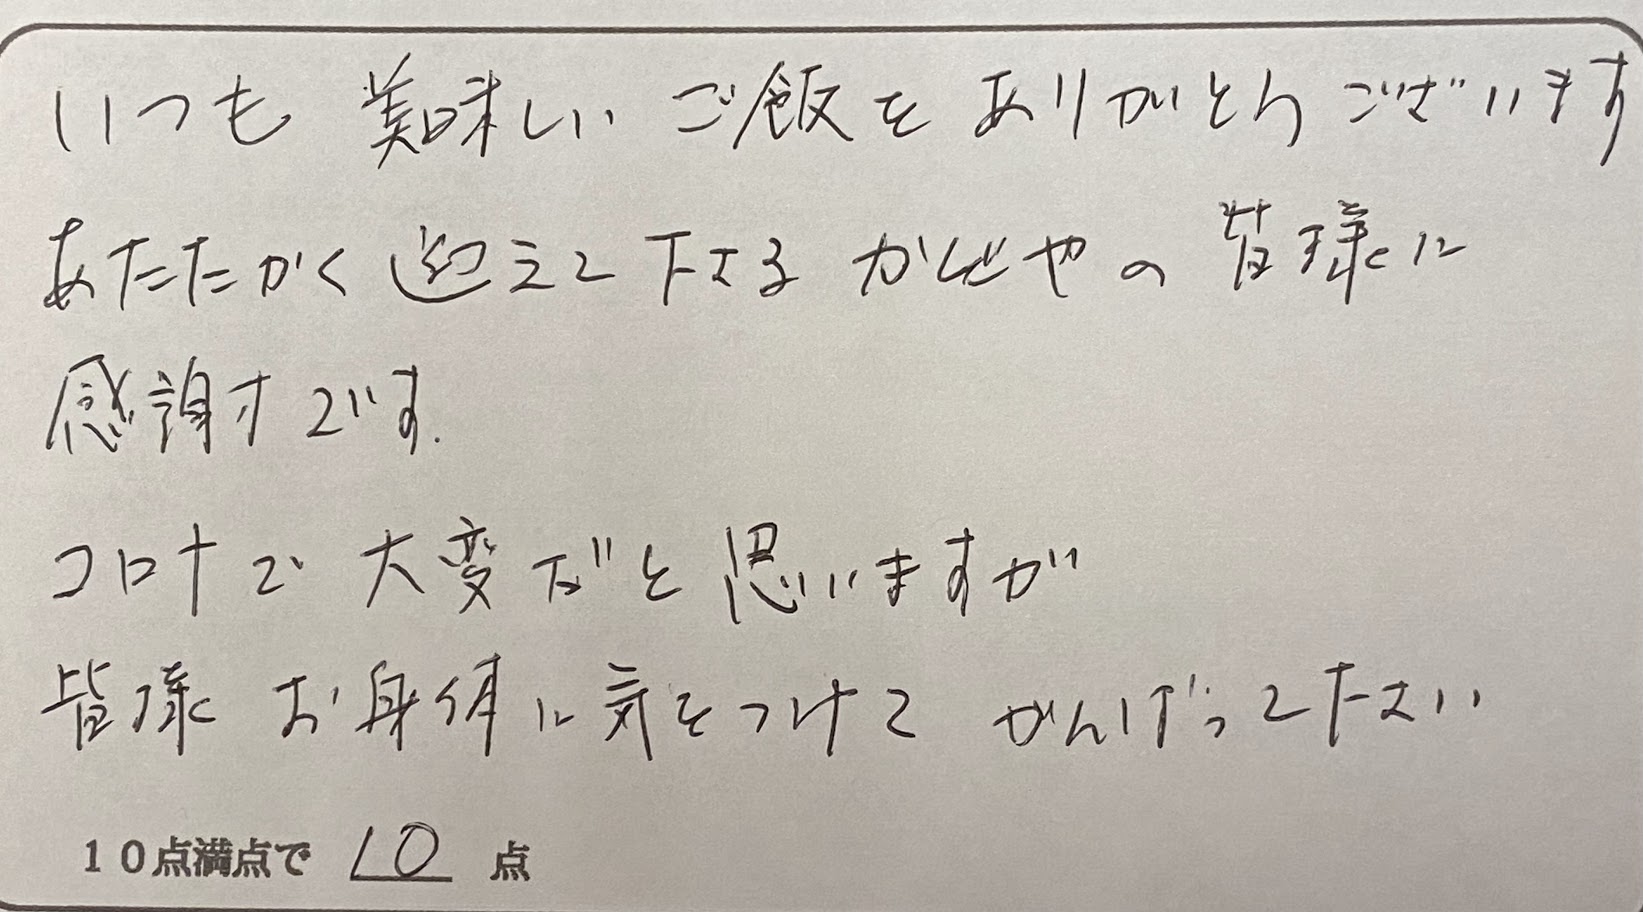 いつも 美味しい ご飯を ありがとうございます
あたたかく 迎えて 下さる かどやの 皆様に
感謝です.
コロナで 大変だと 思いますが
皆様 お身体に 気をつけて がんばって下さい
10点満点で 10 点